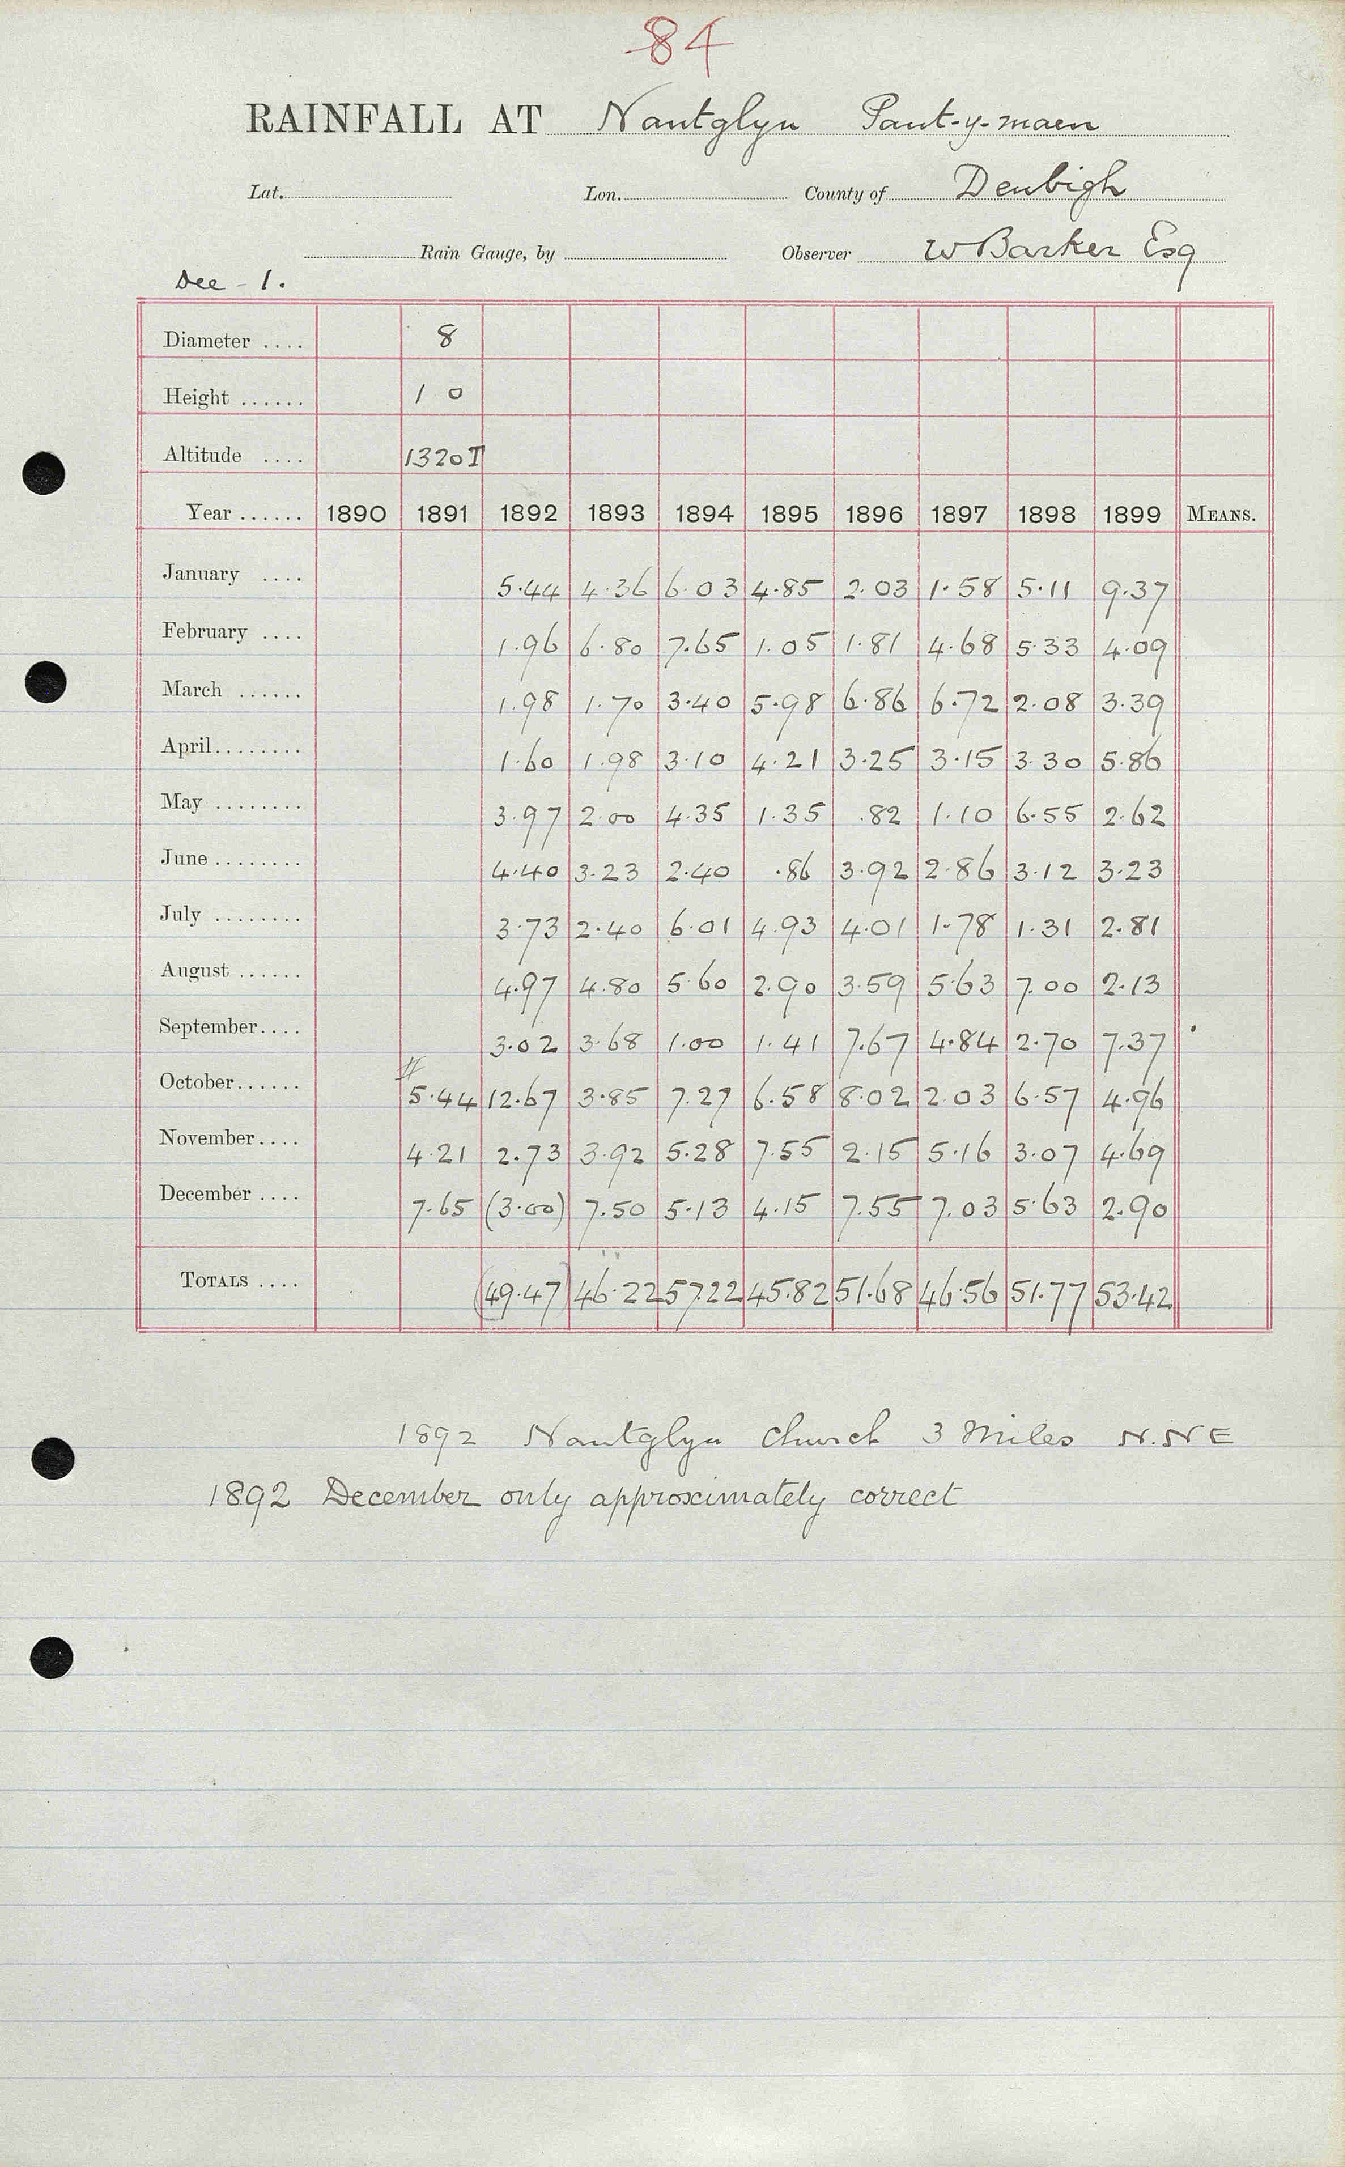 84
RAINFALL AT Nantglyn Pant-y-maen
Lat. Lon. County of Denbigh
Rain Gauge, by Observer W Barker Esq
Dec - 1.
Diameter .... 8
Height ...... 1 0
Altitude .... 1320 T
Year ...... 1890 1891 1892 1893 1894 1895 1896 1897 1898 1899 MEANS.
January .... 5.44 4.36 6.03 4.85 2.03 1.58 5.11 9.37
February .... 1.96 6.80 7.65 1.05 1.81 4.68 5.33 4.09
March ...... 1.98 1.70 3.40 5.98 6.86 6.72 2.08 3.39
April........ 1.60 1.98 3.10 4.21 3.25 3.15 3.30 5.86
May ........ 3.97 2.00 4.35 1.35 .82 1.10 6.55 2.62
June ........ 4.40 3.23 2.40 .86 3.92 2.86 3.12 3.23
July ........ 3.73 2.40 6.01 4.93 4.01 1.78 1.31 2.81
August ...... 4.97 4.80 5.60 2.90 3.59 5.63 7.00 2.13
September.... 3.02 3.68 1.00 1.41 7.67 4.84 2.70 7.37
October...... 5.44 12.67 3.85 7.27 6.58 8.02 2.03 6.57 4.96
November.... 4.21 2.73 3.92 5.28 7.55 2.15 5.16 3.07 4.69
December .... 7.65 (3.00) 7.50 5.13 4.15 7.55 7.03 5.63 2.90
TOTALS .... (49.47) 46.22 57.22 45.82 51.68 46.56 51.77 53.42
1892 Nantglyn Church 3 Miles N.NE
1892 December only approximately correct